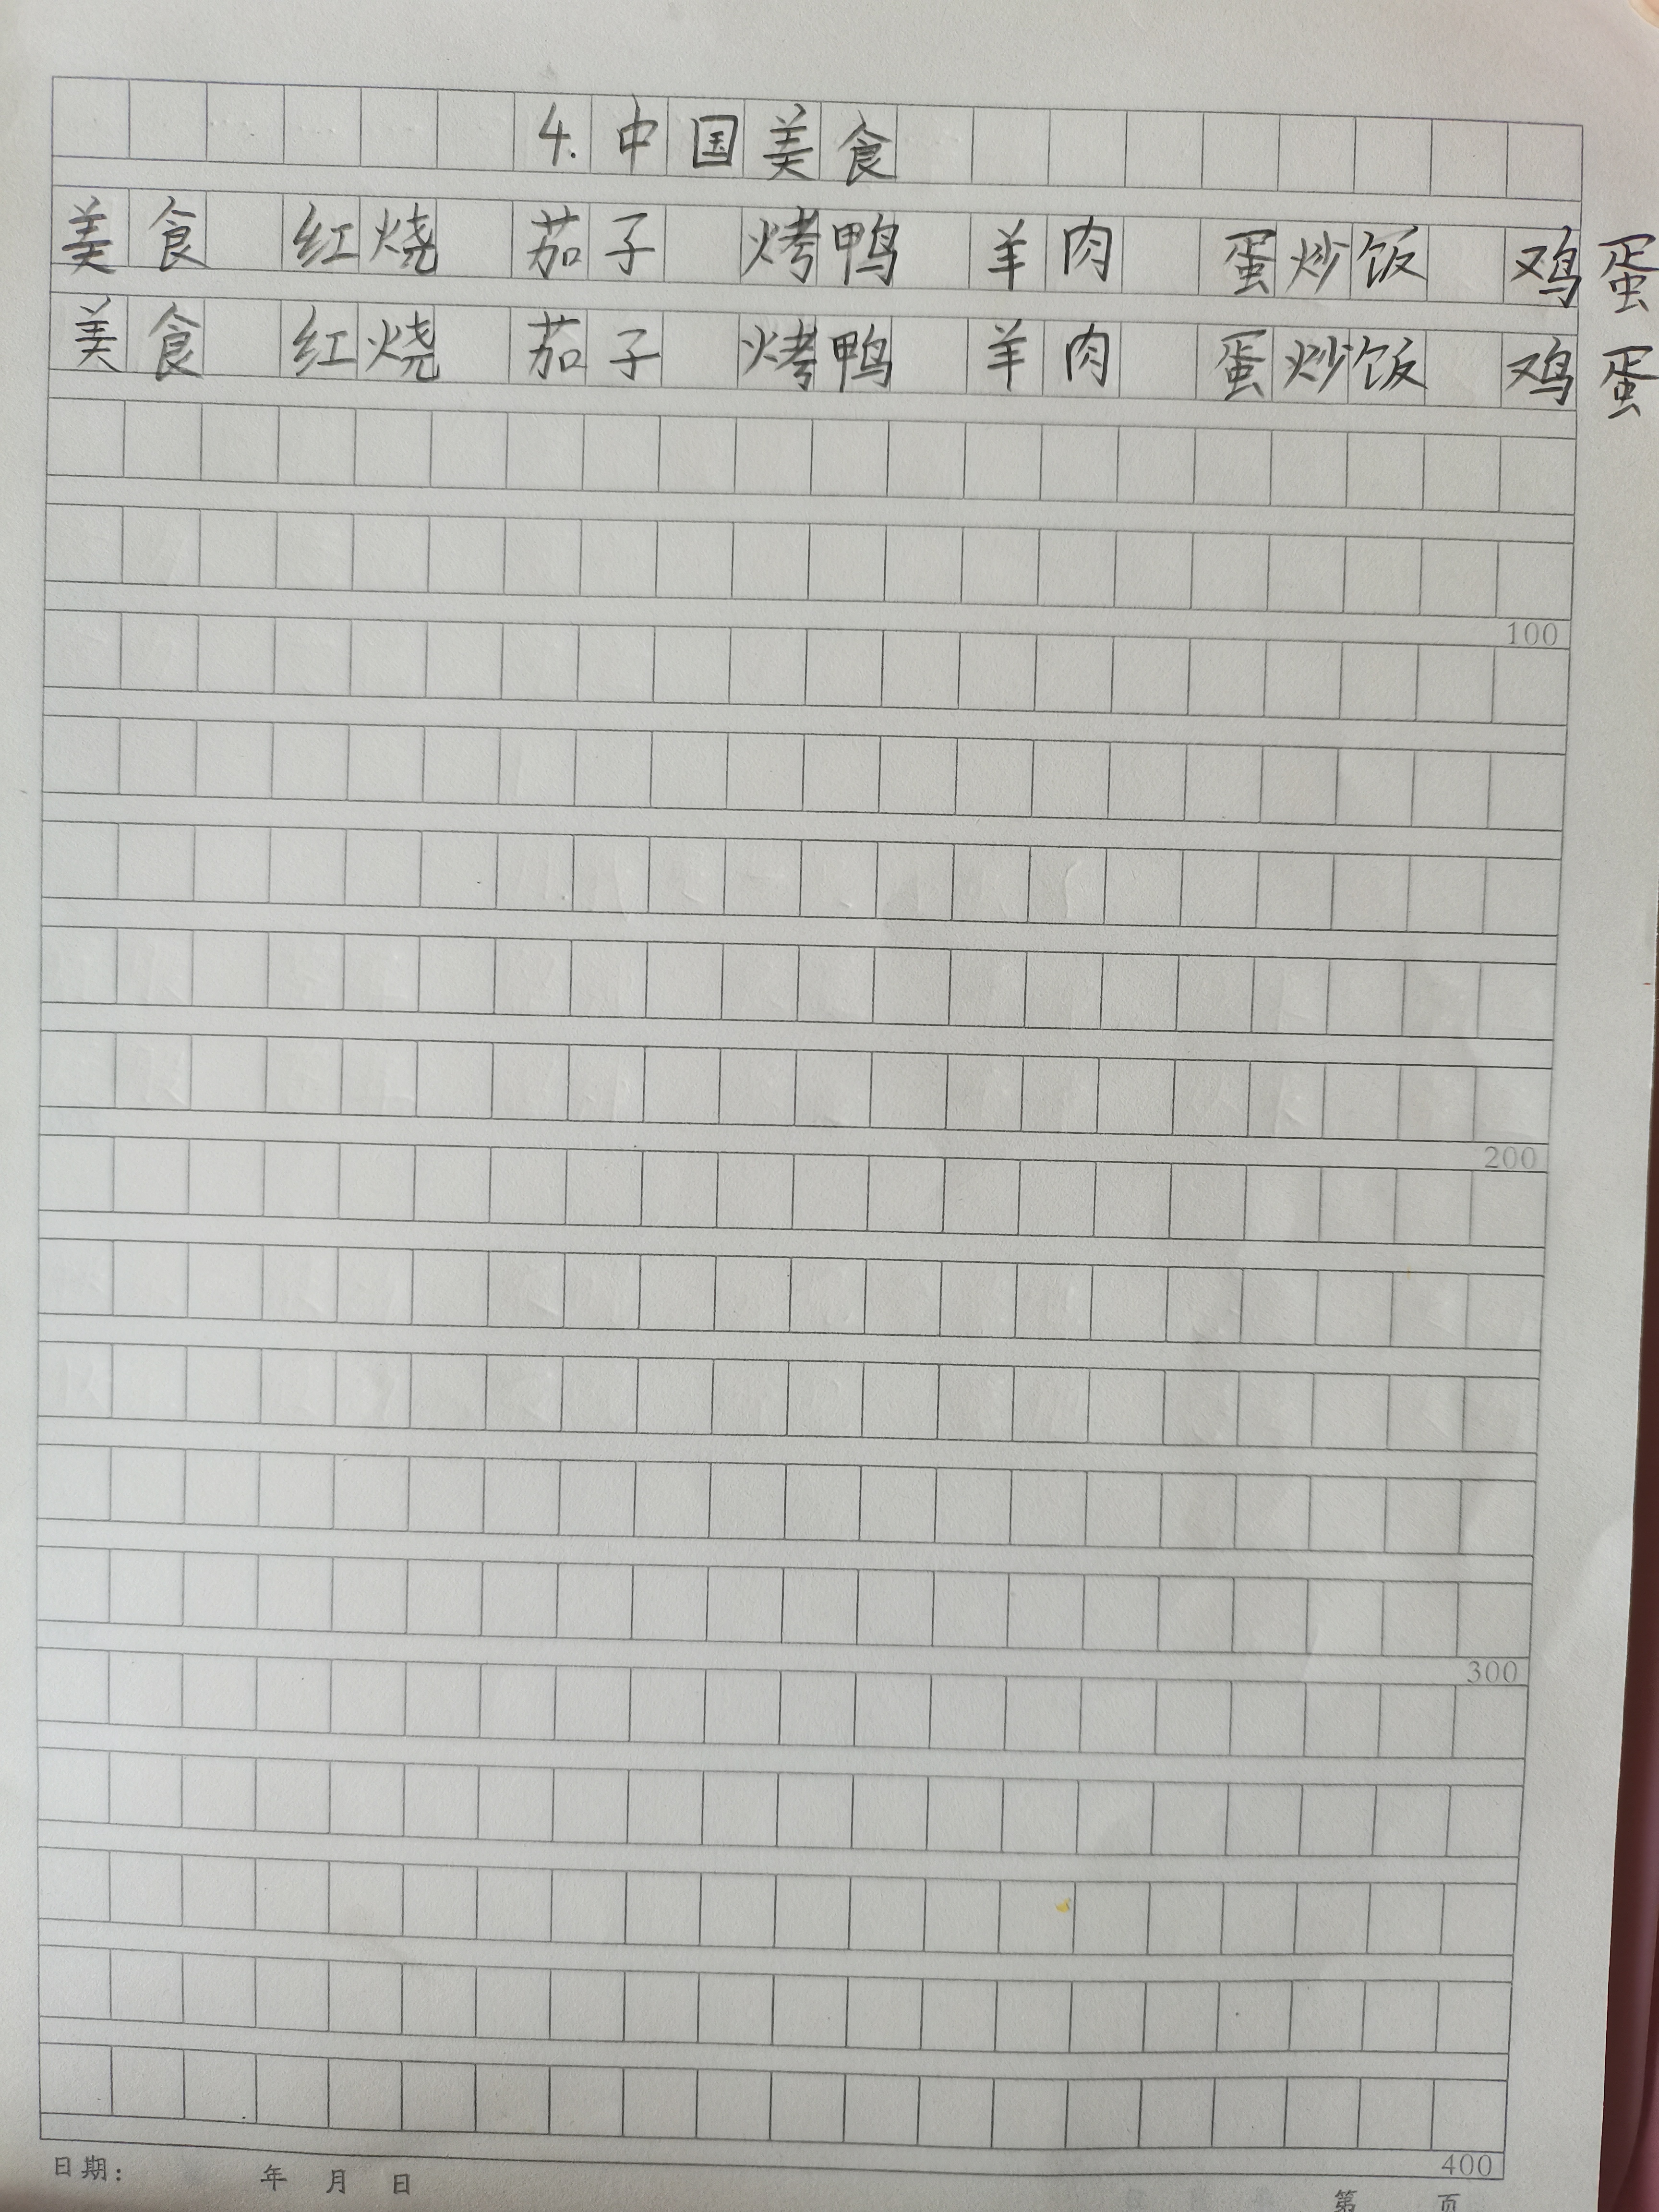 4.中国美食
美食 红烧 茄子 烤鸭 羊肉 蛋炒饭 鸡蛋
美食 红烧 茄子 烤鸭 羊肉 蛋炒饭 鸡蛋
100
200
300
400
日期： 年 月 日 第 页